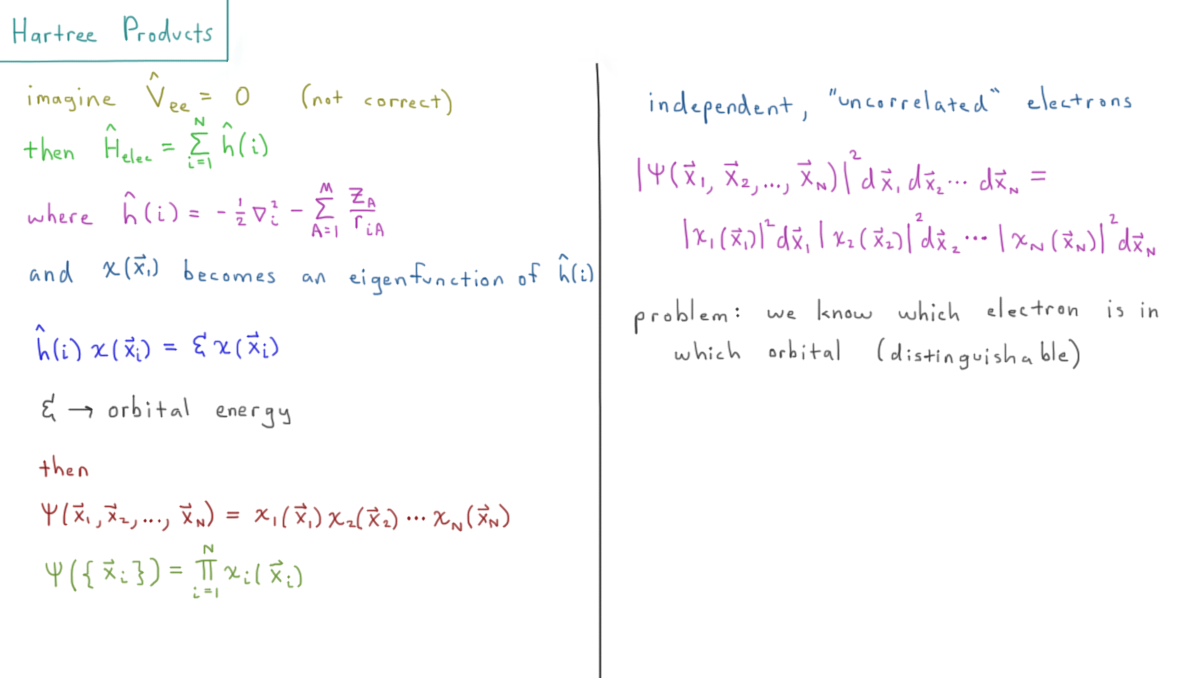 Hartree Products
imagine V̂ₑₑ = 0 (not correct)
then Ĥ_elec = Σ_{i=1}^{N} ĥ(i)
where ĥ(i) = -½∇ᵢ² - Σ_{A=1}^{M} Z_A / r_{iA}
and χ(x⃗₁) becomes an eigenfunction of ĥ(i)
ĥ(i) χ(x⃗ᵢ) = ℰ χ(x⃗ᵢ)
ℰ → orbital energy
then
Ψ(x⃗₁, x⃗₂, ..., x⃗_N) = χ₁(x⃗₁) χ₂(x⃗₂) ⋯ χ_N(x⃗_N)
Ψ({x⃗ᵢ}) = Π_{i=1}^{N} χᵢ(x⃗ᵢ)
independent, "uncorrelated" electrons
|Ψ(x⃗₁, x⃗₂, ..., x⃗_N)|² dx⃗₁ dx⃗₂ ⋯ dx⃗_N =
|χ₁(x⃗₁)|² dx⃗₁ |χ₂(x⃗₂)|² dx⃗₂ ⋯ |χ_N(x⃗_N)|² dx⃗_N
problem: we know which electron is in
which orbital (distinguishable)